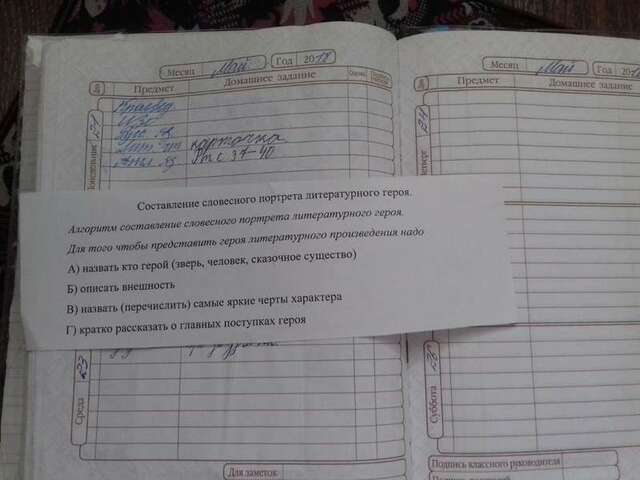 Месяц Май Год 2018
№ Предмет Домашнее задание Оценка
Понедельник 21
ИЗО
Рус. яз
Лит. чт карточка
Англ. яз Рт с 37-40
Составление словесного портрета литературного героя.
Алгоритм составление словесного портрета литературного героя.
Для того чтобы представить героя литературного произведения надо
А) назвать кто герой (зверь, человек, сказочное существо)
Б) описать внешность
В) назвать (перечислить) самые яркие черты характера
Г) кратко рассказать о главных поступках героя
Среда 23
Для заметок:
Месяц Май Год 201
Предмет Домашнее задание
Четверг 24
Суббота 26
Подпись классного руководителя